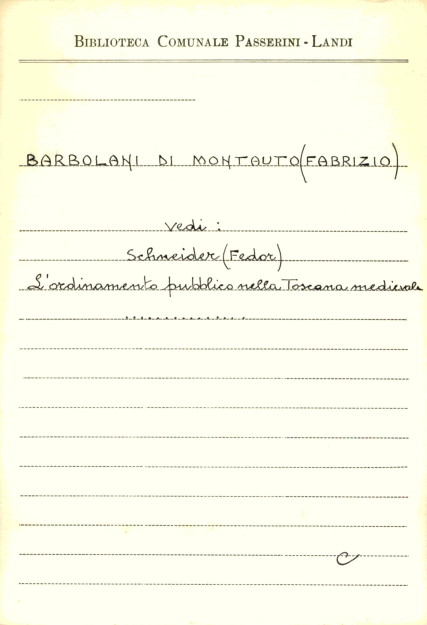 BIBLIOTECA COMUNALE PASSERINI-LANDI
BARBOLANI DI MONTAUTO (FABRIZIO)
Vedi :
Schneider (Fedor)
L'ordinamento pubblico nella Toscana medievale
..............
C